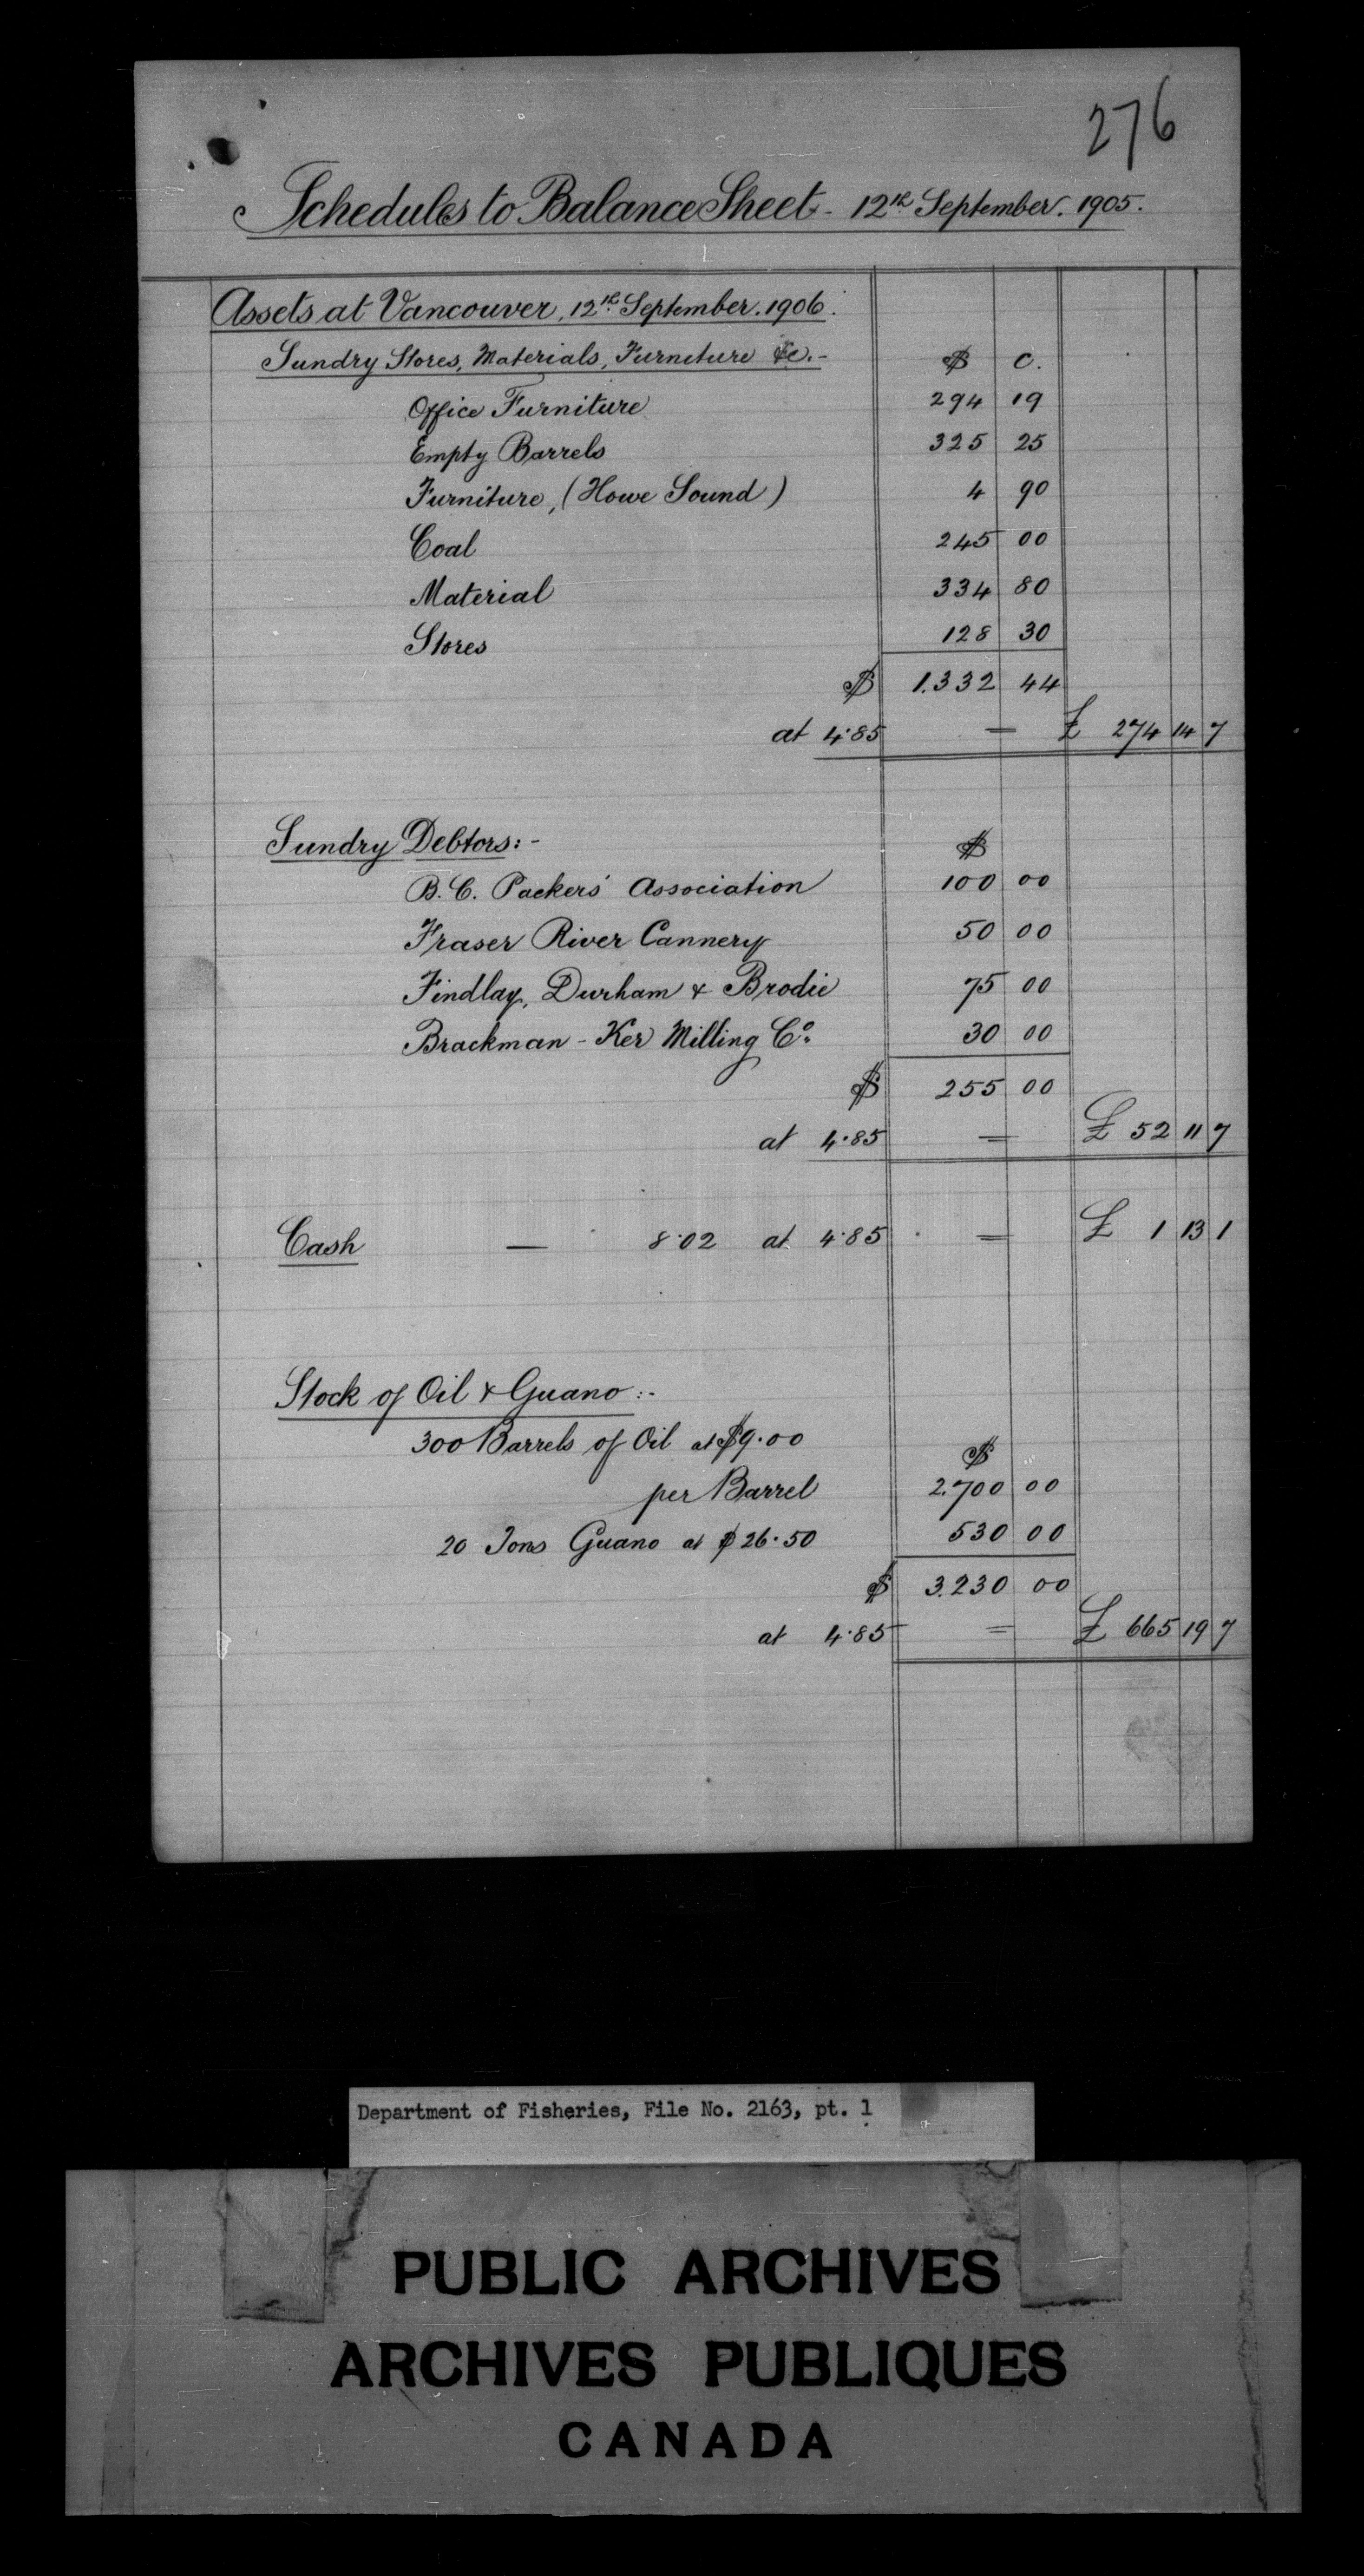 276
Schedules to Balance Sheet - 12th September. 1905.
Assets at Vancouver, 12th September. 1906.
Sundry Stores, Materials, Furniture &c. - $ c.
Office Furniture 294 19
Empty Barrels 325 25
Furniture, (Howe Sound) 4 90
Coal 245 00
Material 334 80
Stores 128 30
$ 1.332 44
at 4.85 = £ 274 14 7
Sundry Debtors: - $
B.C. Packers' Association 100 00
Fraser River Cannery 50 00
Findlay, Durham & Brodie 75 00
Brackman - Ker Milling Co. 30 00
$ 255 00
at 4.85 = £ 52 11 7
Cash — 8.02 at 4.85 = £ 1 13 1
Stock of Oil & Guano :-
300 Barrels of Oil at $9.00 $
per Barrel 2.700 00
20 Tons Guano at $26.50 530 00
$ 3.230 00
at 4.85 = £ 665 19 7
Department of Fisheries, File No. 2163, pt. 1
PUBLIC ARCHIVES
ARCHIVES PUBLIQUES
CANADA